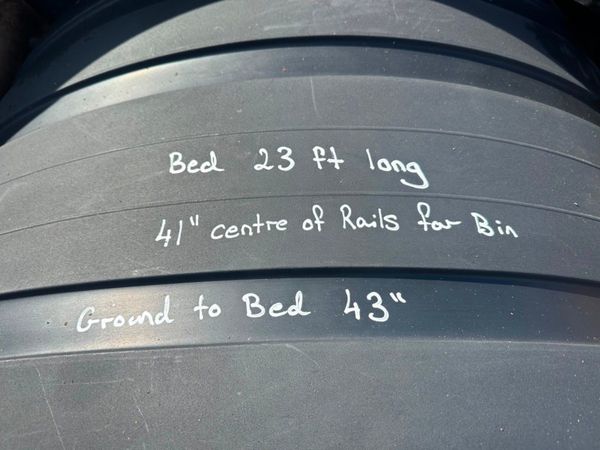 Bed 23 ft long
41" centre of Rails for Bin
Ground to Bed 43"